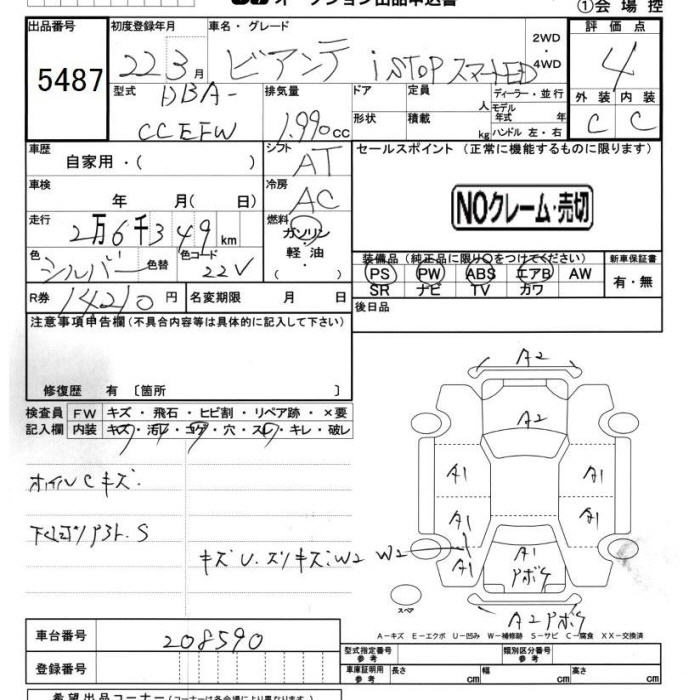 オークション出品申込書
①会場控
出品番号 初度登録年月 車名・グレード 評価点
5487 22 3月 ビアンテ iSTOP スマートED 2WD・4WD 4
型式 排気量 ドア 定員 人 ディーラー・並行 外装 内装
DBA-CCEFW 1.990cc 形状 積載 kg モデル年式 年 ハンドル 左・右 C C
車歴 シフト セールスポイント (正常に機能するものに限ります)
自家用・( ) AT
車検 冷房
年 月( 日) AC NOクレーム・売切
走行 燃料
2万6千349km ガソリン・軽油・( )
色 色替 色コード 装備品(純正品に限り○をつけてください) 新車保証書
シルバー 22V PS PW ABS エアB AW 有・無
SR ナビ TV カワ
R券 14210円 名変期限 月 日 後日品
注意事項申告欄(不具合内容等は具体的に記入して下さい)
修復歴 有 〔箇所 〕
検査員 FW キズ・飛石・ヒビ割・リペア跡・×要
記入欄 内装 キズ・汚レ・コゲ・穴・スレ・キレ・破レ
オイルCキズ.
S
キズU.ズリキズ:W2 W2
A2
A2
A1 A1
A1 A1
A1 A1
Pボケ
スペア
A2 Pボケ
A-キズ E-エクボ U-凹み W-補修跡 S-サビ C-腐食 XX-交換済
車台番号 208590
型式指定番号 参考 類別区分番号 参考
登録番号
車庫証明用 参考 長さ cm 幅 cm 高さ cm
希望出品コーナー(コーナーは各会場により異なります)